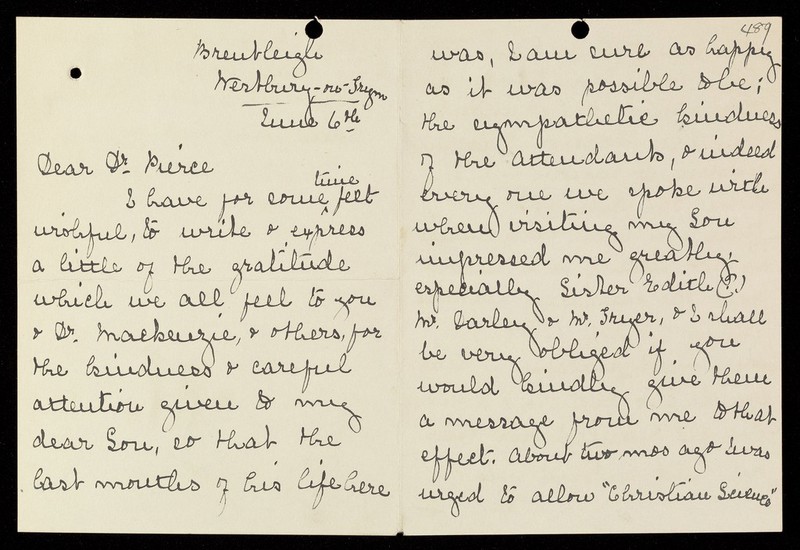 Brentleigh
Westbury-on-Trym
June 6th
Dear Dr. Pierce
I have for some time felt
wishful, to write & express
a little of the gratitude
which we all feel to you
& Dr. Mackenzie, & others, for
the kindness & careful
attention given to my
dear Son, so that the
last months of his life here
489
was, I am sure as happy
as it was possible to be;
the sympathetic kindness
of the attendants, & indeed
every one we spoke with
when visiting my Son
impressed me greatly,
especially Sister Edith (?)
Mr. Darley & Mr. Fryer, & I shall
be very obliged if you
would kindly give them
a message from me to that
effect. About two mos ago I was
urged to allow "Christian Science"